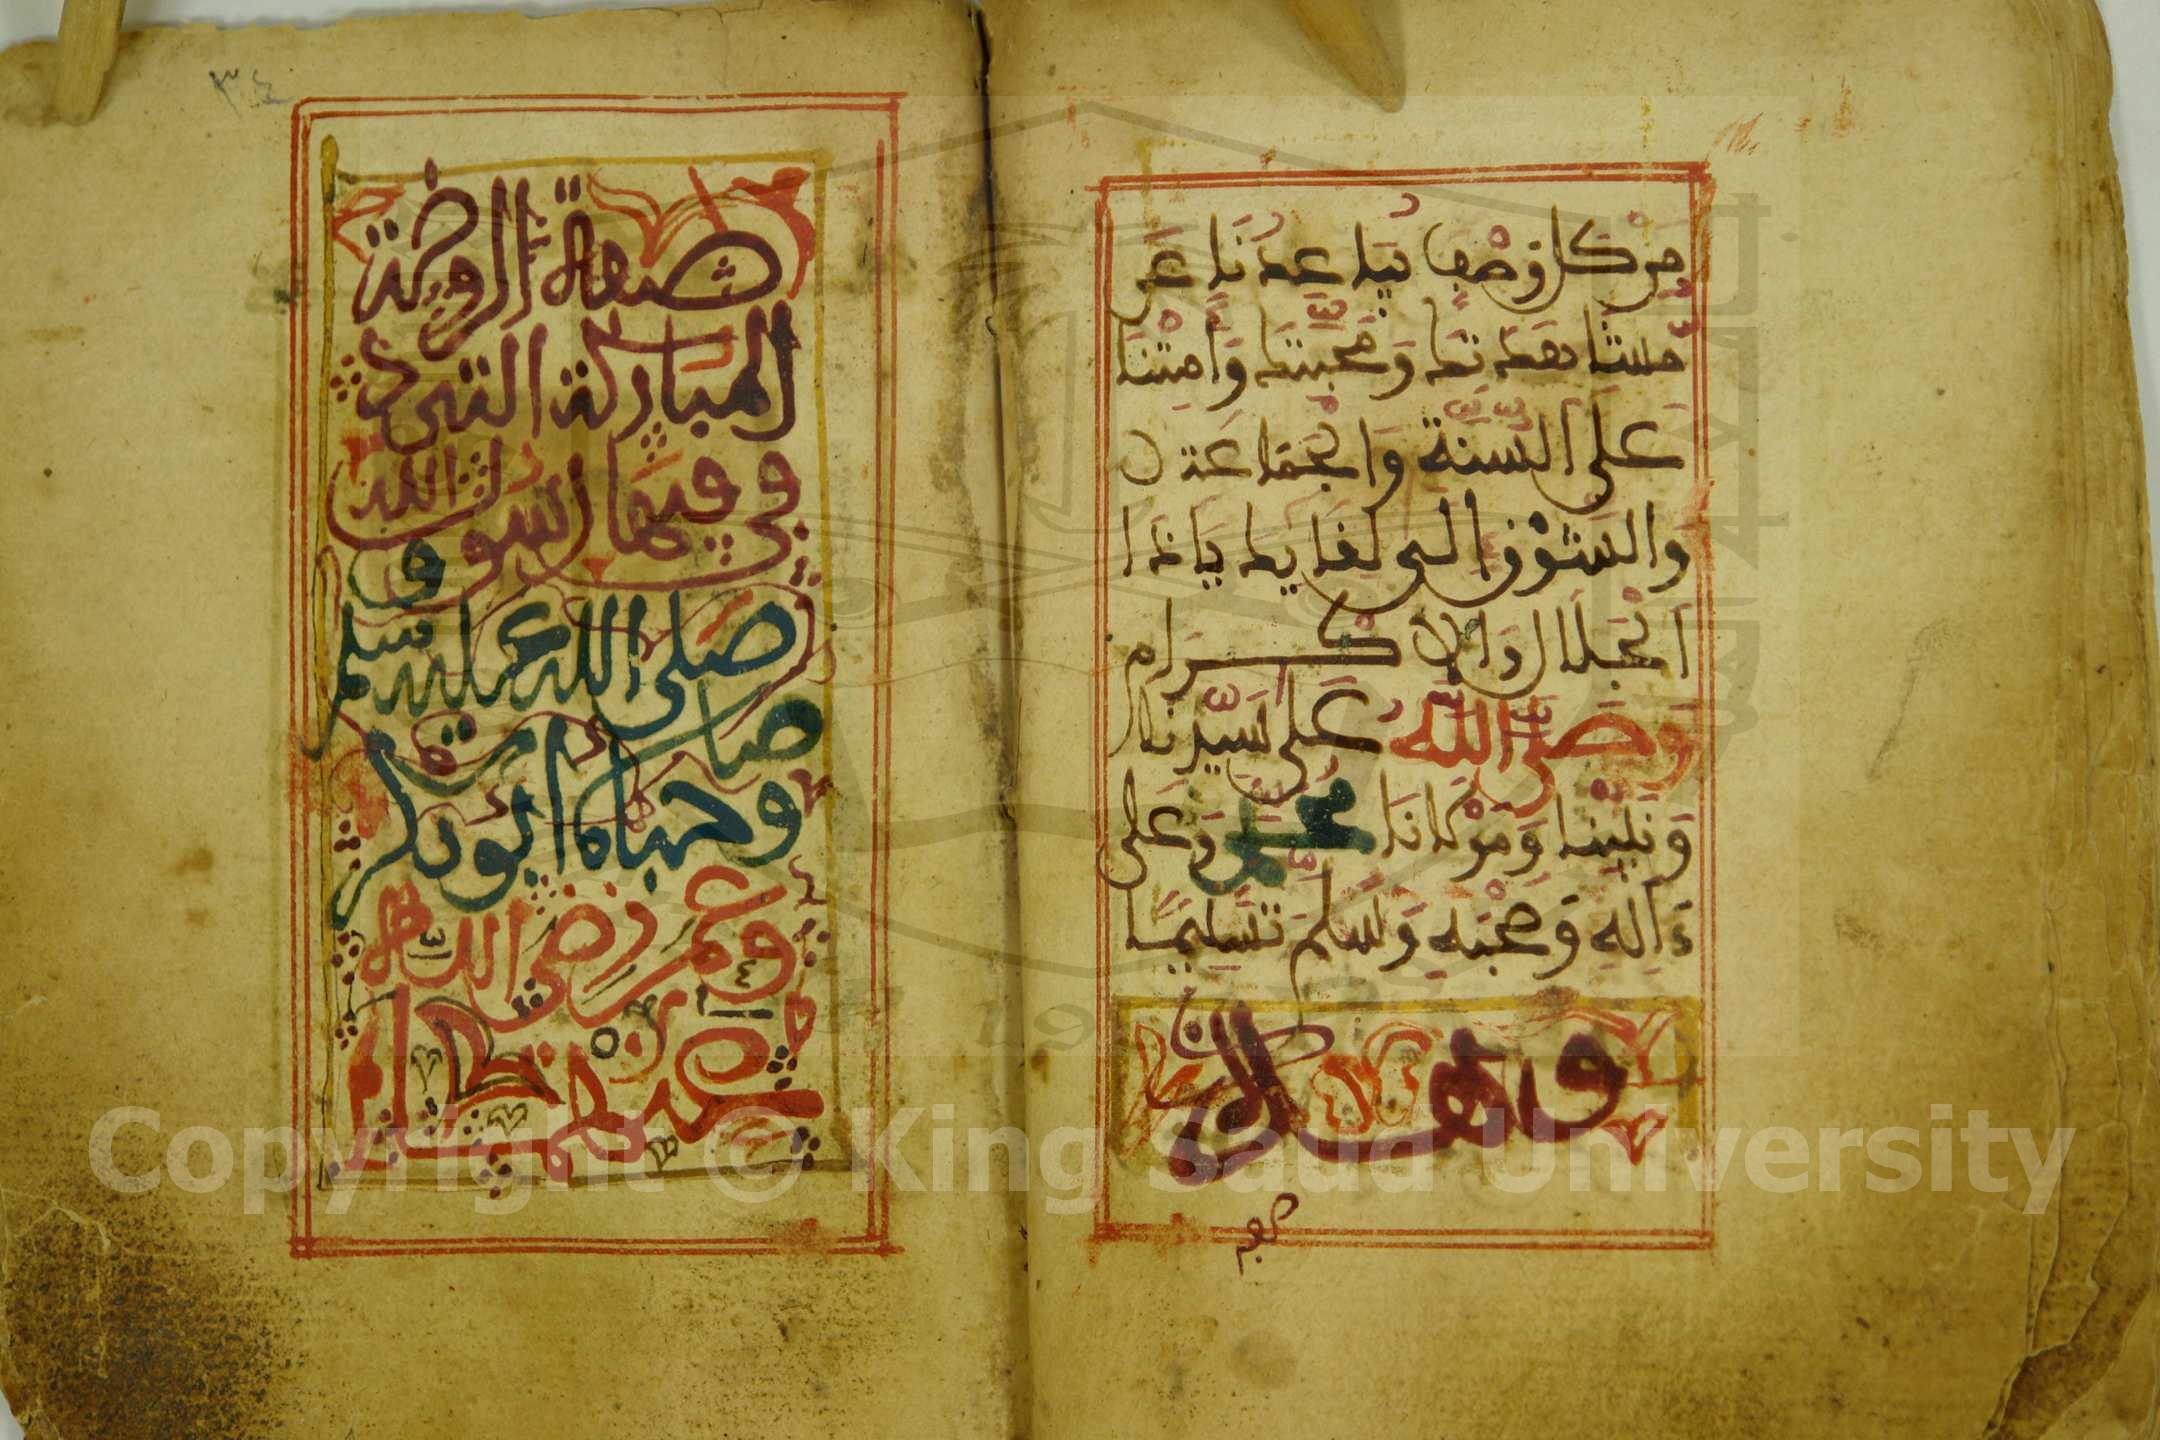 من كل وصف يباعدنا عن
مشاهدتك ومحبتك وأمتنا
على السنة والجماعة
والشوق إلى لقائك ياذا
الجلال والإكرام
وصلى الله على سيدنا
ونبينا ومولانا محمد وعلى
ءاله وصحبه وسلم تسليما
وهذه
صفة
٣٤
صفة الروضة
المباركة التي د
فن فيها رسول الله
صلى الله عليه وسلم
وصاحباه ابو بكر
وعمر رضي الله
عنهما
Copyright © King Saud University